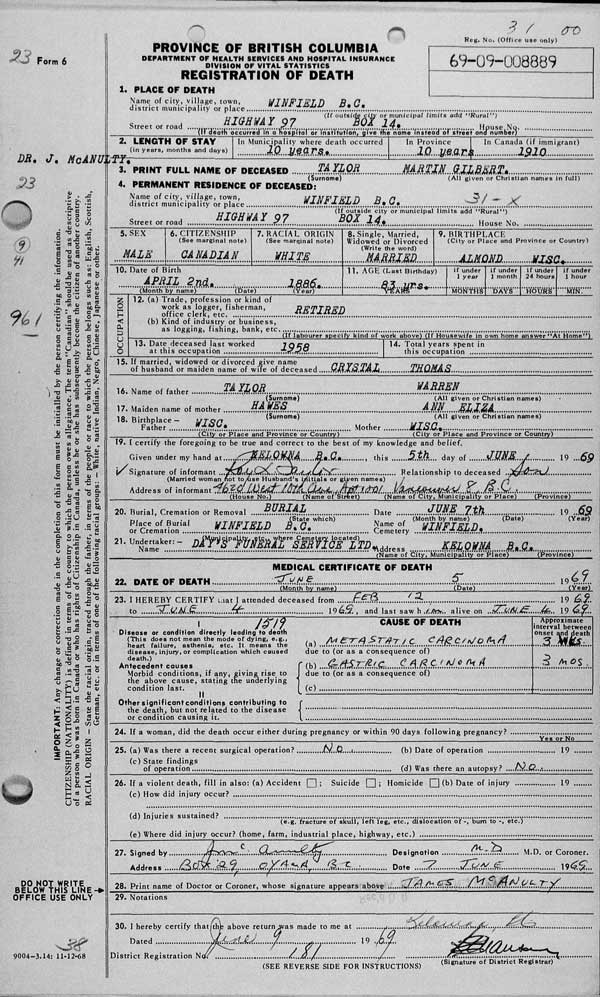 31 00
Reg. No. (Office use only)
23 Form 6
PROVINCE OF BRITISH COLUMBIA
DEPARTMENT OF HEALTH SERVICES AND HOSPITAL INSURANCE
DIVISION OF VITAL STATISTICS
REGISTRATION OF DEATH
69-09-008889
1. PLACE OF DEATH
Name of city, village, town, district municipality or place WINFIELD B.C.
(If outside city or municipal limits add "Rural")
Street or road HIGHWAY 97 BOX 14. House No.
(If death occurred in a hospital or institution, give the name instead of street and number)
2. LENGTH OF STAY (in years, months and days) In Municipality where death occurred 10 years. In Province 10 years In Canada (if immigrant) 1910
DR. J. McANULTY.
23
3. PRINT FULL NAME OF DECEASED TAYLOR MARTIN GILBERT.
(Surname) (All given or Christian names in full)
4. PERMANENT RESIDENCE OF DECEASED:
Name of city, village, town, district municipality or place WINFIELD B.C. 31-X
(If outside city or municipal limits add "Rural")
Street or road HIGHWAY 97 BOX 14. House No.
5. SEX MALE
6. CITIZENSHIP (See marginal note) CANADIAN
7. RACIAL ORIGIN (See marginal note) WHITE
8. Single, Married, Widowed or Divorced (Write the word) MARRIED
9. BIRTHPLACE (City or Place and Province or Country) ALMOND WISC.
9
41
961
10. Date of Birth APRIL 2nd. 1886.
(Month by name) (Date) (Year)
11. AGE (Last Birthday) 83 yrs. YEARS
if under 1 year MONTHS if under 1 month DAYS if under 24 hours HOURS if under 1 hour MIN.
OCCUPATION
12. (a) Trade, profession or kind of work as logger, fisherman, office clerk, etc. RETIRED
(b) Kind of industry or business, as logging, fishing, bank, etc.
(If labourer specify kind of work above) (If Housewife in own home answer "At Home")
13. Date deceased last worked at this occupation 1958
14. Total years spent in this occupation
15. If married, widowed or divorced give name of husband or maiden name of wife of deceased CRYSTAL THOMAS
16. Name of father TAYLOR WARREN
(Surname) (All given or Christian names)
17. Maiden name of mother HAWES ANN ELIZA
(Surname) (All given or Christian names)
18. Birthplace – Father WISC. Mother WISC.
(City or Place and Province or Country) (City or Place and Province or Country)
19. I certify the foregoing to be true and correct to the best of my knowledge and belief.
Given under my hand at KELOWNA B.C., this 5th day of JUNE 1969
Signature of informant Relationship to deceased Son
(Married woman not to use Husband's initials or given names)
Address of informant West 10th Ave, Vancouver 8 B.C.
(House No.) (Name of Street) (Name of City, Municipality or Place) (Province)
20. Burial, Cremation or Removal BURIAL Date JUNE 7th 1969
(State which) (Month by name) (Date) (Year)
Place of Burial or Cremation WINFIELD B.C. Name of Cemetery WINFIELD.
(Municipality, etc. where Cemetery located)
21. Undertaker:– Name DAY'S FUNERAL SERVICE LTD. Address KELOWNA B.C.
(Name of City, Municipality or Place) (Province)
MEDICAL CERTIFICATE OF DEATH
22. DATE OF DEATH JUNE 5 1969
(Month by name) (Date) (Year)
23. I HEREBY CERTIFY that I attended deceased from FEB 12 1969
to JUNE 4 1969, and last saw him alive on JUNE 4 1969.
1519
I
CAUSE OF DEATH
Approximate interval between onset and death
Disease or condition directly leading to death
(This does not mean the mode of dying, e.g., heart failure, asthenia, etc. It means the disease, injury, or complication which caused death.)
(a) METASTATIC CARCINOMA 3
due to (or as a consequence of)
Antecedent causes
Morbid conditions, if any, giving rise to the above cause, stating the underlying condition last.
(b) GASTRIC CARCINOMA 3 MOS
due to (or as a consequence of)
(c)
II
Other significant conditions contributing to the death, but not related to the disease or condition causing it.
24. If a woman, did the death occur either during pregnancy or within 90 days following pregnancy?
Yes or No
25. (a) Was there a recent surgical operation? No (b) Date of operation 19
(c) State findings of operation (d) Was there an autopsy? No.
26. If a violent death, fill in also: (a) Accident ; Suicide ; Homicide (b) Date of injury 19
(c) How did injury occur?
(d) Injuries sustained?
(e.g. fracture of skull, left leg, etc., dislocation of -, burn to -, etc.)
(e) Where did injury occur? (home, farm, industrial place, highway, etc.)
27. Signed by Designation M.D M.D. or Coroner.
Address BOX 29, OYAMA, B.C. Date 7 JUNE 1969
28. Print name of Doctor or Coroner, whose signature appears above JAMES McANULTY
29. Notations
30. I hereby certify that the above return was made to me at Kelowna,
Dated June 9 1969
District Registration No. 181
(Signature of District Registrar)
(SEE REVERSE SIDE FOR INSTRUCTIONS)
IMPORTANT: Any change or correction made in the completion of this form must be initialled by the person certifying the information.
CITIZENSHIP (NATIONALITY) is defined in terms of the country to which the person owes allegiance. The term "Canadian" should be used as descriptive of a person who was born in Canada or who has rights of Citizenship in Canada, unless he or she has subsequently become the citizen of another country.
RACIAL ORIGIN – State the racial origin, traced through the father, in terms of the people or race to which the person belongs such as: English, Scottish, German, etc. or in terms of one of the following racial groups: – White, native Indian, Negro, Chinese, Japanese or other.
DO NOT WRITE BELOW THIS LINE OFFICE USE ONLY
38
9004-3.14: 11-12-68